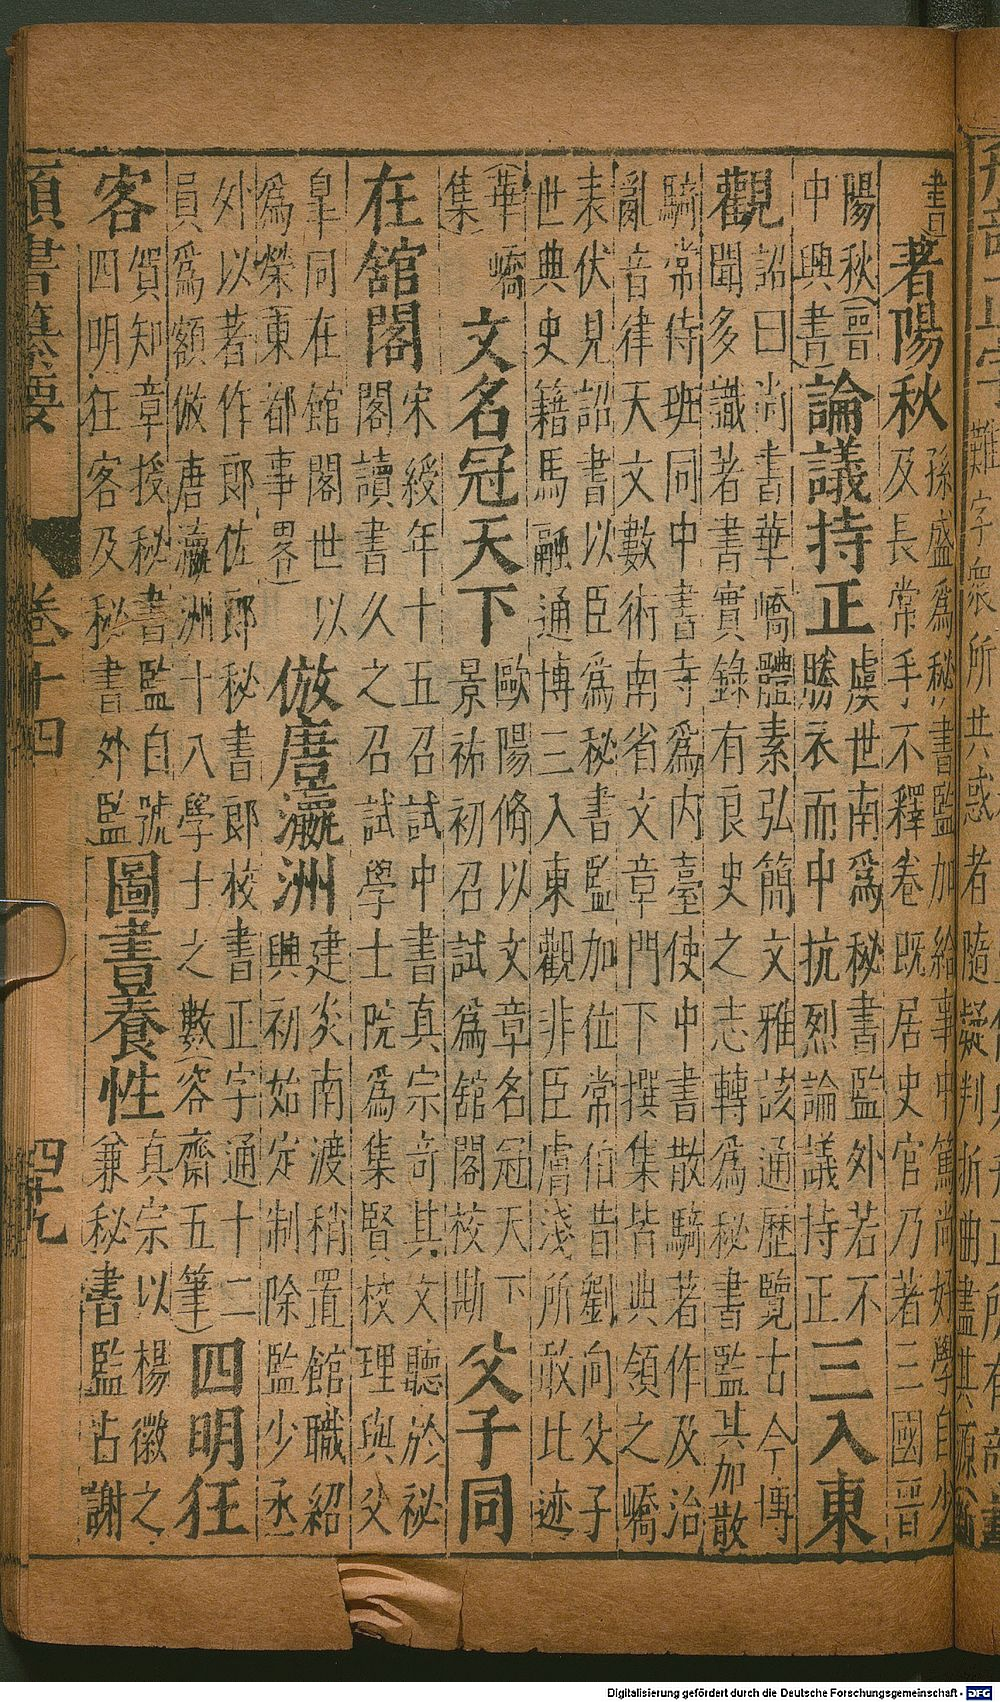 難字衆所共惑者隨疑判析曲盡其源
著陽秋
孫盛爲秘書監加給事中篤尚好學自少
及長常手不釋卷既居史官乃著三國晉
陽秋(晉
中興書)
論議持正
虞世南爲秘書監外若不
勝衣而中抗烈論議持正
三入東
觀
詔曰尚書華嶠體素弘簡文雅該通歷覽古今博
聞多識著書實錄有良史之志轉爲秘書監其加散
騎常侍班同中書寺爲内臺使中書散騎著作及治
亂音律天文數術南省文章門下撰集皆典領之嶠
表伏見詔書以臣爲秘書監加位常伯昔劉向父子
世典史籍馬融通博三入東觀非臣膚淺所敢比迹
(華嶠
集)
文名冠天下
歐陽脩以文章名冠天下
景祐初召試爲舘閣校勘
父子同
在舘閣
宋綬年十五召試中書真宗奇其文聽於祕
閣讀書久之召試學士院爲集賢校理與父
皐同在館閣世以
爲榮東都事畧)
倣唐瀛洲
建炎南渡稍置館職紹
興初始定制除監少丞
外以著作郎佐郎秘書郎校書正字通十二
員爲額倣唐瀛洲十八學士之數(容齋五筆)
四明狂
客
賀知章授秘書監自號
四明狂客及秘書外監
圖書養性
真宗以楊徽之
兼秘書監古謝
類書纂要 卷十四 四十九
Digitalisierung gefördert durch die Deutsche Forschungsgemeinschaft - DFG